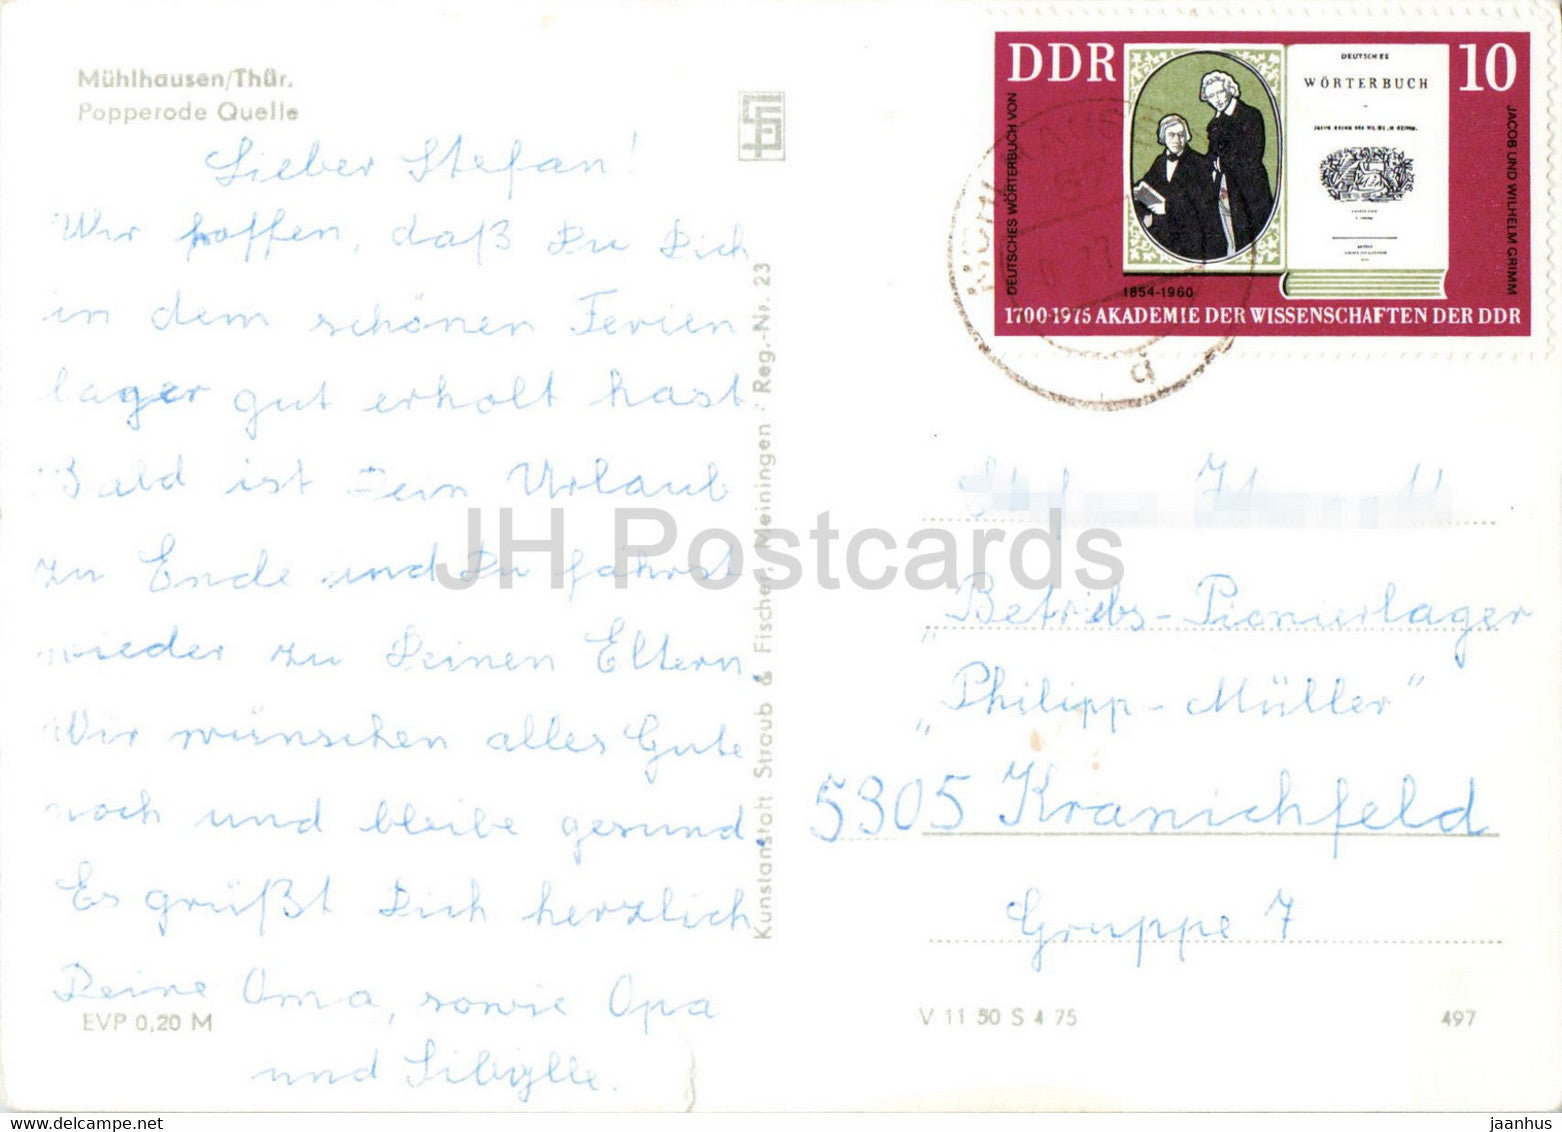 Mühlhausen/Thür.
Popperode Quelle
Lieber Stefan!
Wir hoffen, daß Du Dich
in dem schönen Ferien
lager gut erholt hast.
Bald ist Dein Urlaub
zu Ende und Du fährst
wieder zu Deinen Eltern.
Wir wünschen alles Gute
noch und bleibe gesund.
Es grüßt Dich herzlich
Deine Oma, sowie Opa
und Sibylle.
EVP 0,20 M
Kunstanstalt Straub & Fischer, Meiningen · Reg.-Nr. 23
DDR
10
DEUTSCHES WÖRTERBUCH VON
JACOB UND WILHELM GRIMM
DEUTSCHES
WÖRTERBUCH
VON
JACOB GRIMM UND WILHELM GRIMM.
1854-1960
1700-1975 AKADEMIE DER WISSENSCHAFTEN DER DDR
d
Betriebs-Pionierlager
„Philipp-Müller"
5305 Kranichfeld
Gruppe 7
V 11 50 S 4 75
497
JH Postcards
jaanhus